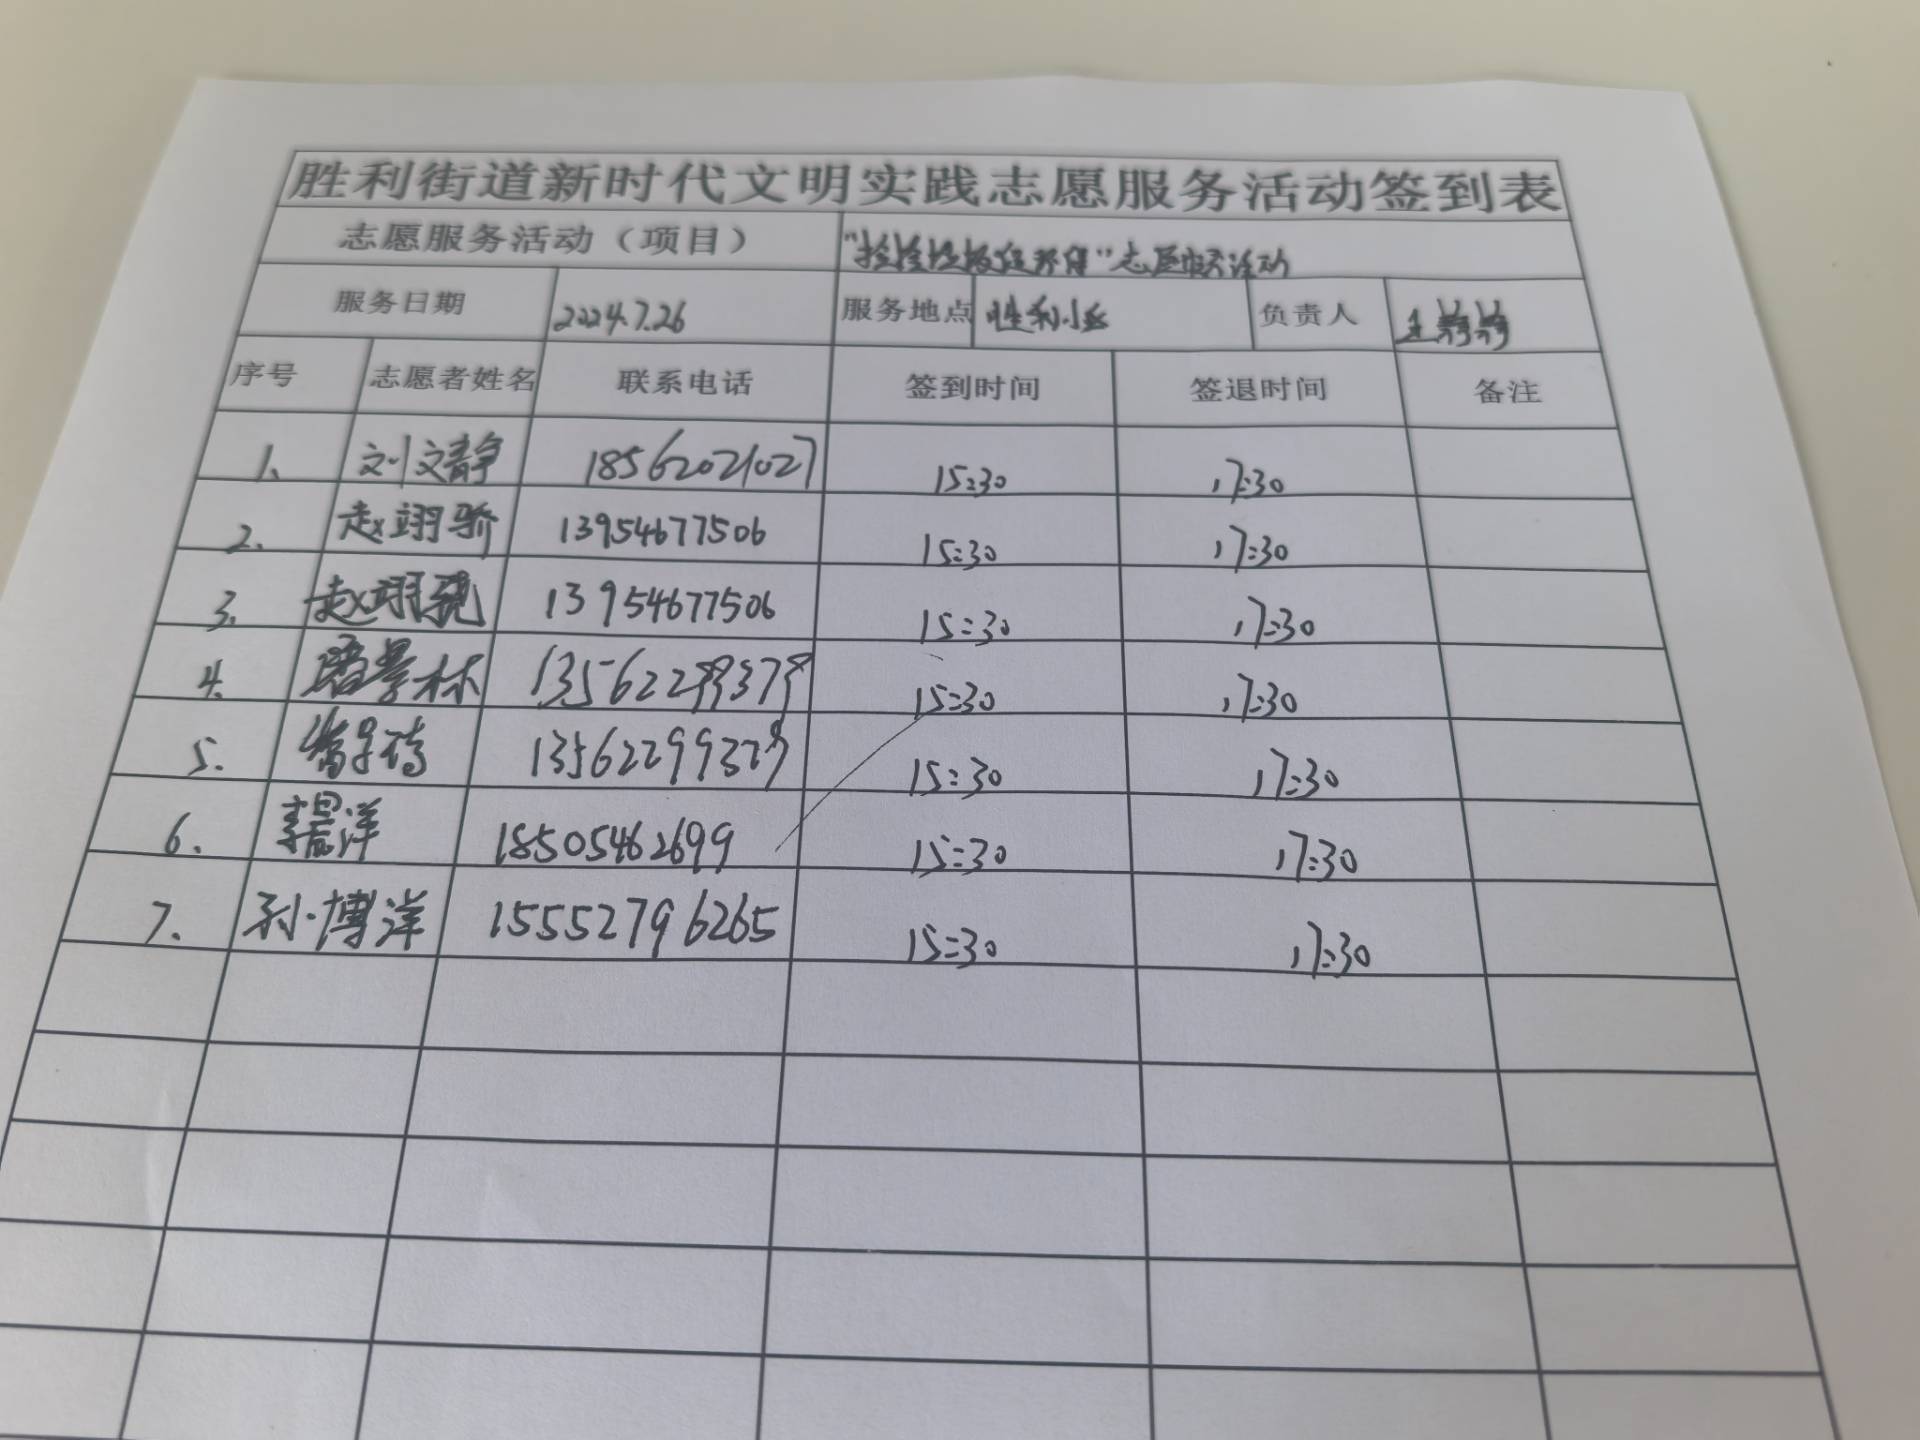 胜利街道新时代文明实践志愿服务活动签到表
志愿服务活动（项目） "捡捡垃圾促环保"志愿服务活动
服务日期 2024.7.26 服务地点 胜利小区 负责人 王
序号 志愿者姓名 联系电话 签到时间 签退时间 备注
1、 刘文静 18562021027 15:30 17:30
2. 赵翊骄 13954677506 15:30 17:30
3. 赵翊骁 13954677506 15:30 17:30
4. 景林 13562299379 15:30 17:30
5. 13562299379 15:30 17:30
6. 洋 18505462699 15:30 17:30
7. 孙博洋 15552796265 15:30 17:30